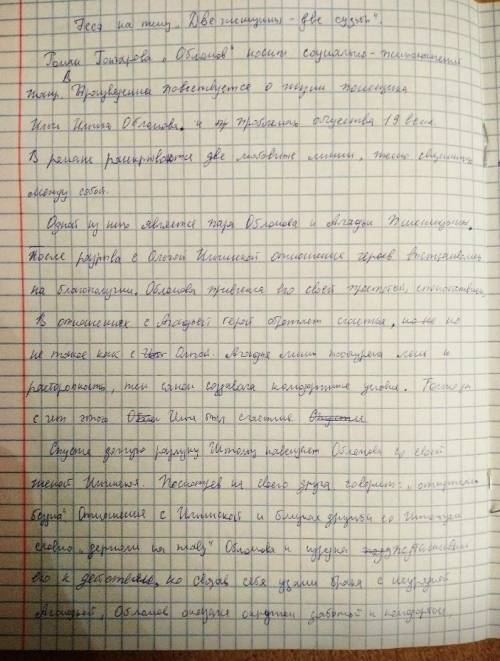 Эссе на тему "Две женщины - две судьбы".
Роман Гончарова "Обломов" носит социально-психологический
В
жанр. Произведении повествуется о жизни помещика
Ильи Ильича Обломова и пр проблемах общества 19 века.
В романе раскрываются две любовные линии, тесно связанные
между собой.
Одной из них является пара Обломова и Агафьи Пшеницыной.
После разрыва с Ольгой Ильинской отношения героев выстраивались
на благополучии. Обломова привлекла его своей простотой, спокойствием.
В отношениях с Агафьей герой обретает счастье, но не по
не такое как с Ольгой. Агафья лишь поощряла лень и
расторопность, тем самым создавала комфортные условия. Только за
счет этого Илья был счастлив. Спустя
Спустя долгую разлуку Штольц навещает Обломова со своей
женой Ильинской. Посмотрев на своего друга, говорит: "открылась
бездна". Отношения с Ильинской и близкая дружба со Штольцем
словно "держали на плаву" Обломова и изредка подталкивали
его к действиям, но связав себя узами брака с нещадной
Агафьей, Обломов оказался окружен заботой и комфортом,